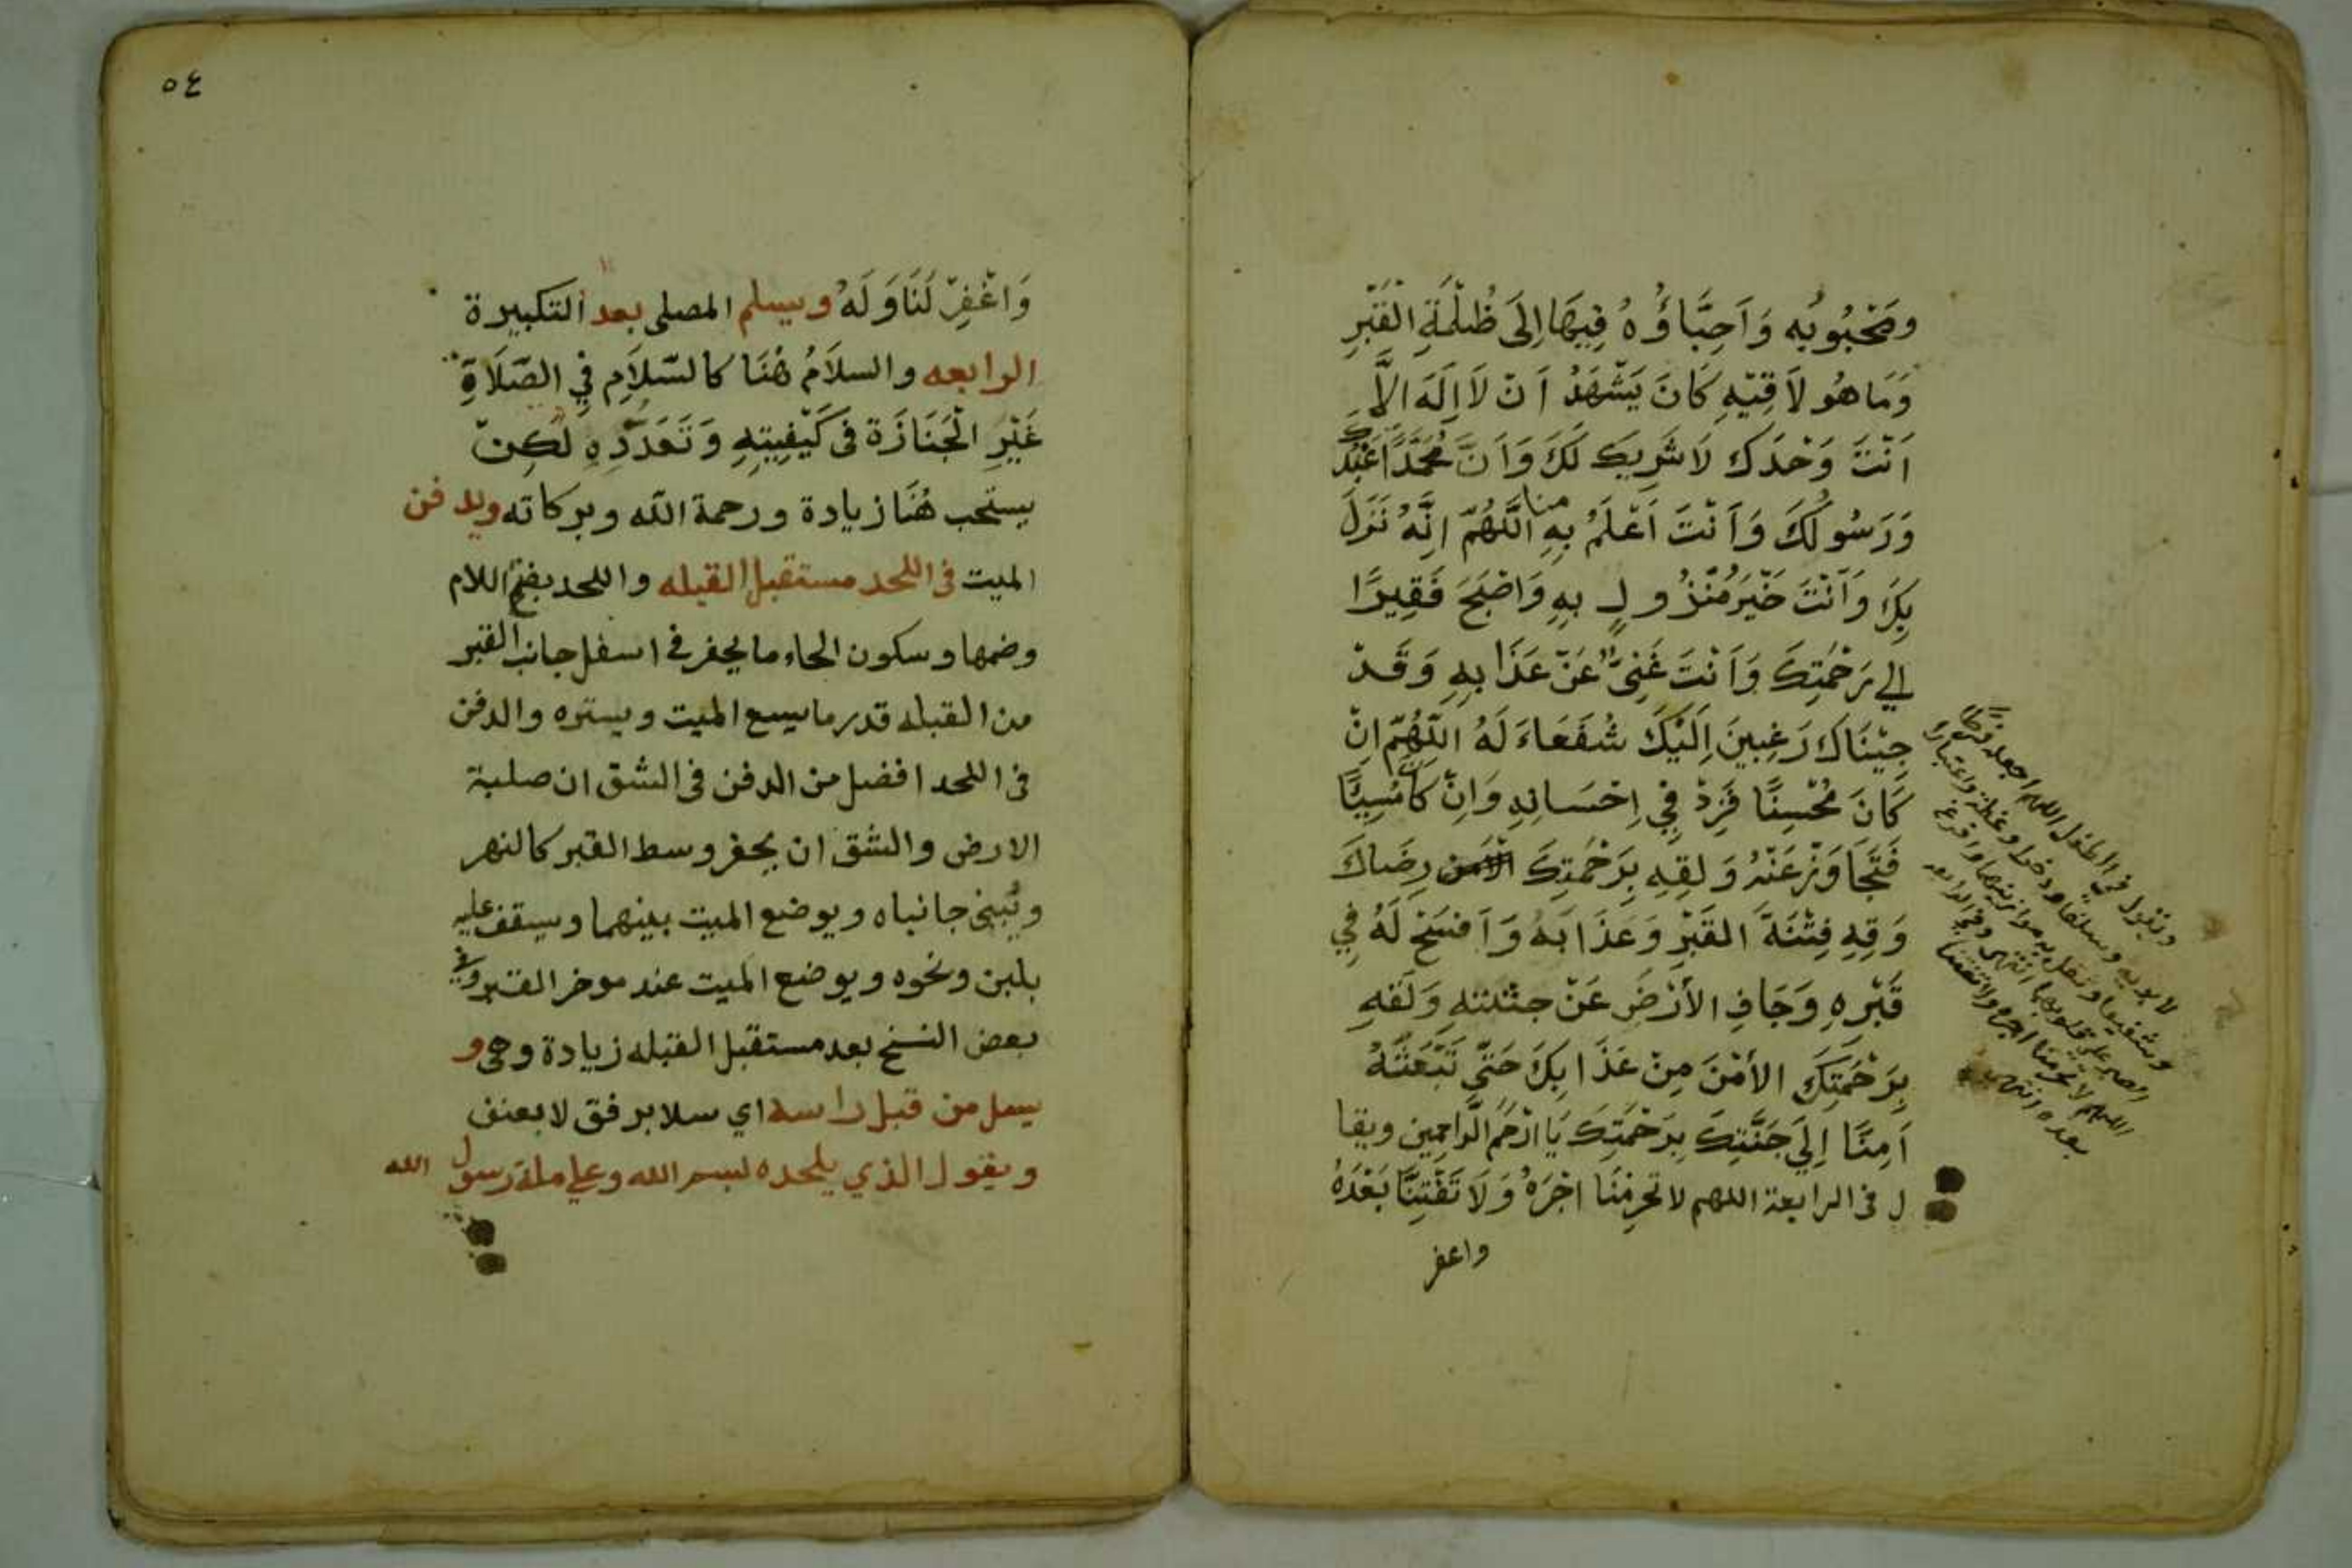 ومَحْبُوبُه وَاَحِبَّاؤُهُ فِيهَا اِلَى ظُلْمَةِ الْقَبْرِ
وَمَا هُو لَاقِيْهِ كَانَ يَشْهَدُ اَنْ لَا اِلَهَ الَّا
اَنْتَ وَحْدَكَ لَا شَرِيكَ لَكَ وَاَنَّ مُحَمَّدًا عَبْدُكَ
وَرَسُولُكَ وَاَنْتَ اَعْلَمُ بِهِ منا اللَّهُمّ اِنَّهُ نَزَلَ
بِكَ وَاَنْتَ خَيْرُ مَنْزُولٍ بِهِ وَاَصْبَحَ فَقِيرًا
الي رَحْمَتِكَ وَاَنْتَ غَنِىٌّ عَنْ عَذَابِهِ وَقَدْ
جِيْنَاكَ رَغِبِينَ اِلَيْكَ شُفَعَاءَ لَهُ اللّهُمّ اِنْ
كَانَ مُحْسِنًا فَزِدْ فِي اِحْسَانِهِ وَاِنْ كَانَ مُسِيًّا
فَتَجَاوَزْ عَنْهُ وَلَقِهِ بِرَحْمَتِكَ رِضَاكَ
وَقِهِ فِتْنَةَ القَبْرِ وَعَذَابَهُ وَاَفْسَحْ لَهُ فِي
قَبْرِهِ وَجَافِ الأَرْضَ عَنْ جثتته وَلَقهِ
بِرَحْمَتِكَ الأَمْنَ مِنْ عَذَابِكَ حَتَّي تَبْعَثَهُ
اَمِنًا اِلَي جَنَّتِكَ بِرَحْمَتِكَ يَا اَرْحَمَ الرَّاحِمِين ويقا
ل فى الرابعة اللهم لا تحرِمْنَا اَجْرَهُ وَلَا تَفْتِنَّا بَعْدَهُ
واغفر
ويقول في الطفل اللهم اجعله فرطا
لابويه وسلفا وذخرا وعظة واعتبارا
وشفيعا وثقل به موازينهما وافرغ
الصبر على قلوبهما انتهى وفي الرابعه
اللهم لا تحرمنا اجره ولا تفتنا
بعده انتهى
٥٤
وَاغْفِرْ لَنَا وَلَهُ ويسلم المصلى بعد التكبيرة
الرابعه والسلَامُ هُنَا كالسّلَامِ فِي الصّلَاةِ
غَيْرِ الْجَنَازَة فى كَيْفِيتِهِ وَتَعَدُّدِهِ لكِنْ
يستحب هُنَا زيادة ورحمة الله وبركاته ويدفن
الميت فى اللحد مستقبل القبله واللحد بفتح اللام
وضمها وسكون الحاء ما يحفر فى اسفل جانب القبر
من القبله قدر ما يسع الميت ويستره والدفن
فى اللحد افضل من الدفن فى الشق ان صلبة
الارض والشق ان يحفر وسط القبر كالنهر
ويُبنى جانباه ويوضع الميت بينهما ويسقف عليه
بلبن ونحوه ويوضع الميت عند موخر القبر وفي
بعض النسخ بعد مستقبل القبله زيادة وهى و
يسل من قبل راسه اي سلا برفق لا بعنف
ويقول الذي يلحده بسم الله وعلى ملة رسول الله